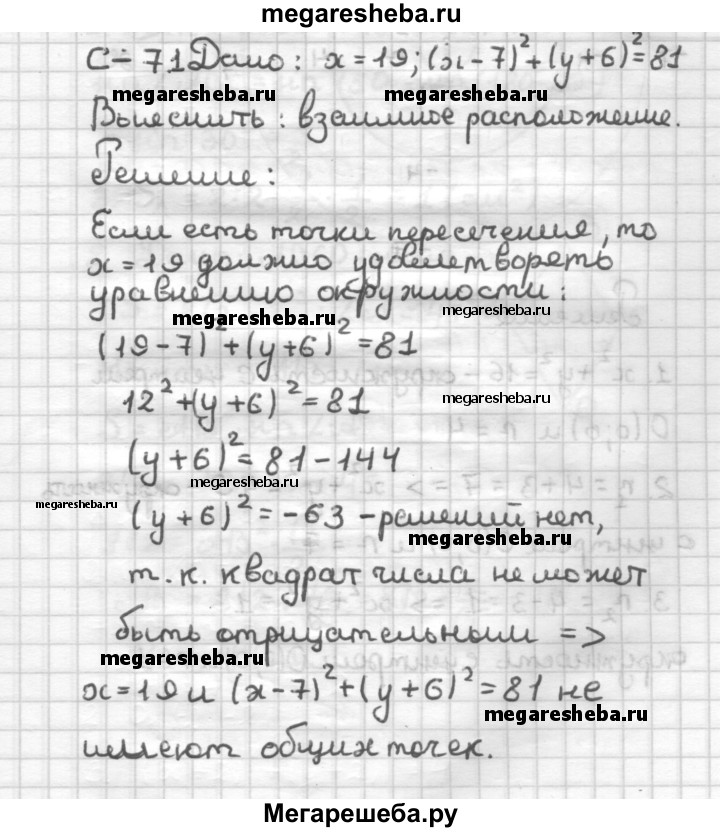 megaresheba.ru
С-71 Дано: x=19; (x-7)²+(y+6)²=81
megaresheba.ru megaresheba.ru
Выяснить: взаимное расположение.
Решение:
Если есть точки пересечения, то
x=19 должно удовлетворять
уравнению окружности:
megaresheba.ru megaresheba.ru
(19-7)²+(y+6)²=81
12²+(y+6)²=81
megaresheba.ru
(y+6)²=81-144
megaresheba.ru
megaresheba.ru
(y+6)²=-63 - решений нет,
megaresheba.ru
т.к. квадрат числа не может
быть отрицательным =>
megaresheba.ru
x=19 и (x-7)²+(y+6)²=81 не
megaresheba.ru
имеют общих точек.
Мегарешеба.ру